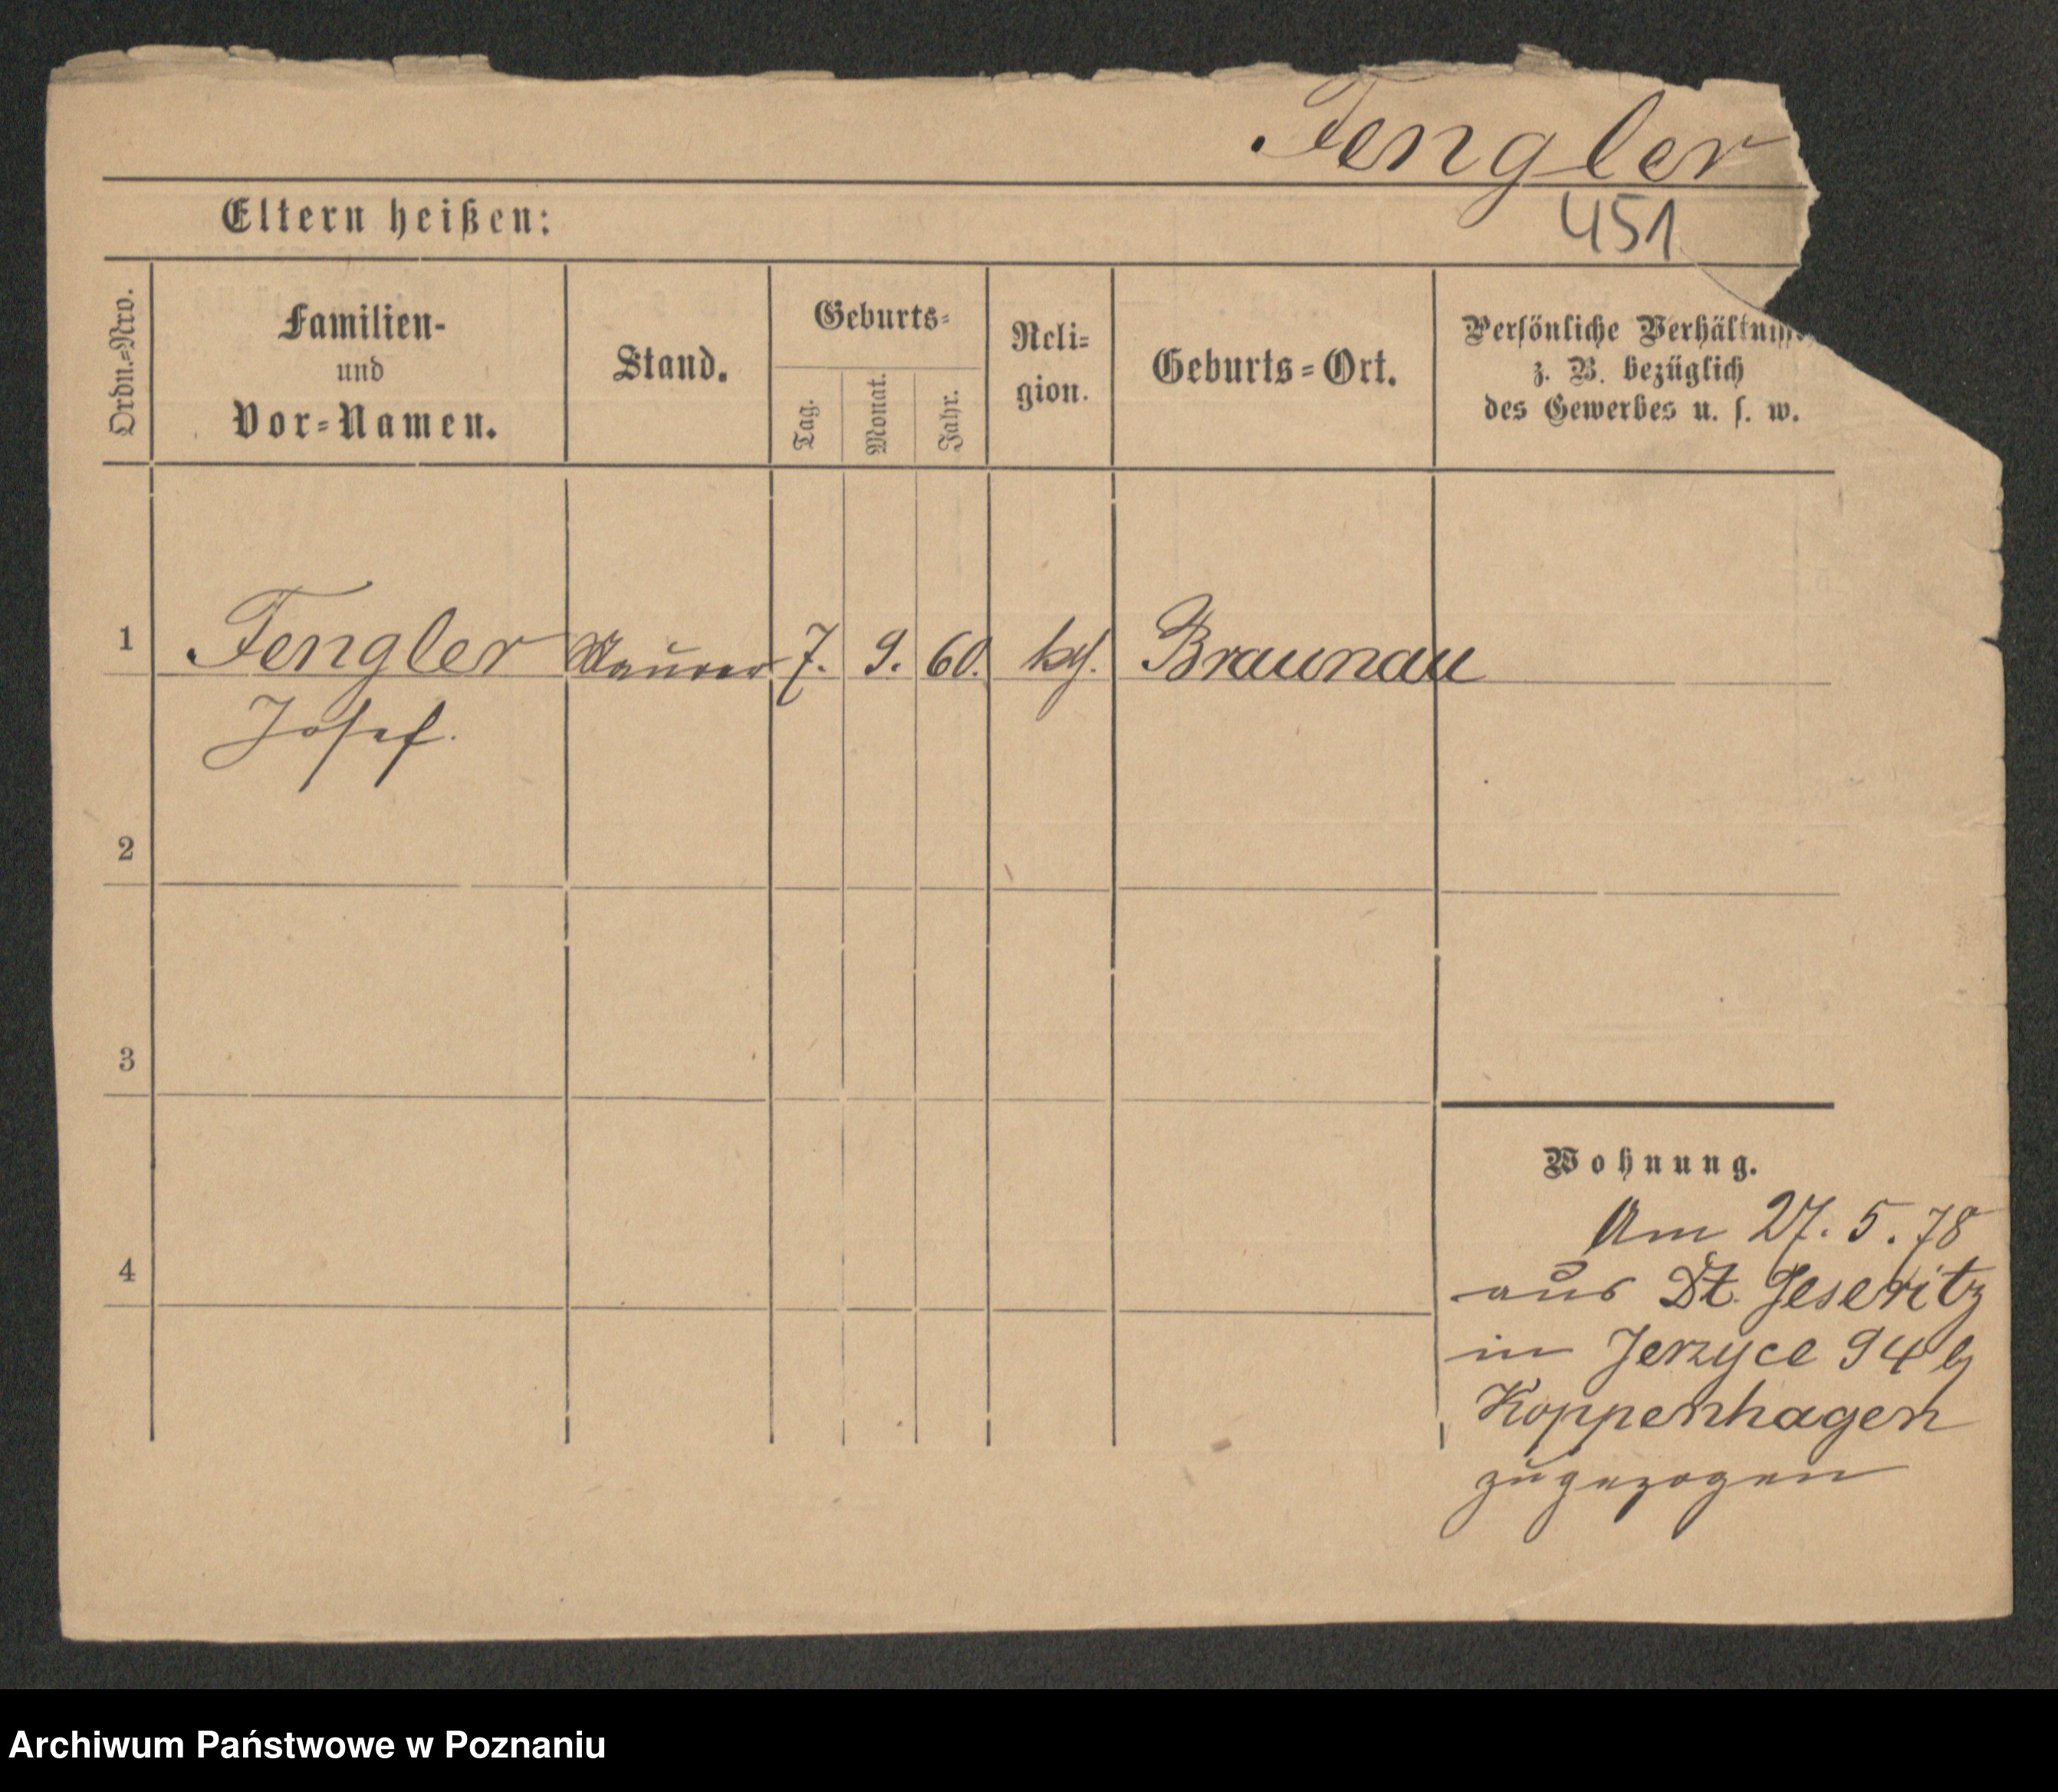 Fengler
451
Eltern heißen:
Ordn.=Nro.
Familien-
und
Vor=Namen.
Stand.
Geburts=
Tag.
Monat.
Jahr.
Reli=
gion.
Geburts=Ort.
Persönliche
z. B. bezüglich
des Gewerbes u. s. w.
1
Fengler Maurer 7. 9. 60. Braunau
Josef.
2
3
4
Wohnung.
Am 27. 5. 78
aus Dt. Jeseritz
in Jerzyce 94 b
Koppenhagen
zugezogen
Archiwum Państwowe w Poznaniu